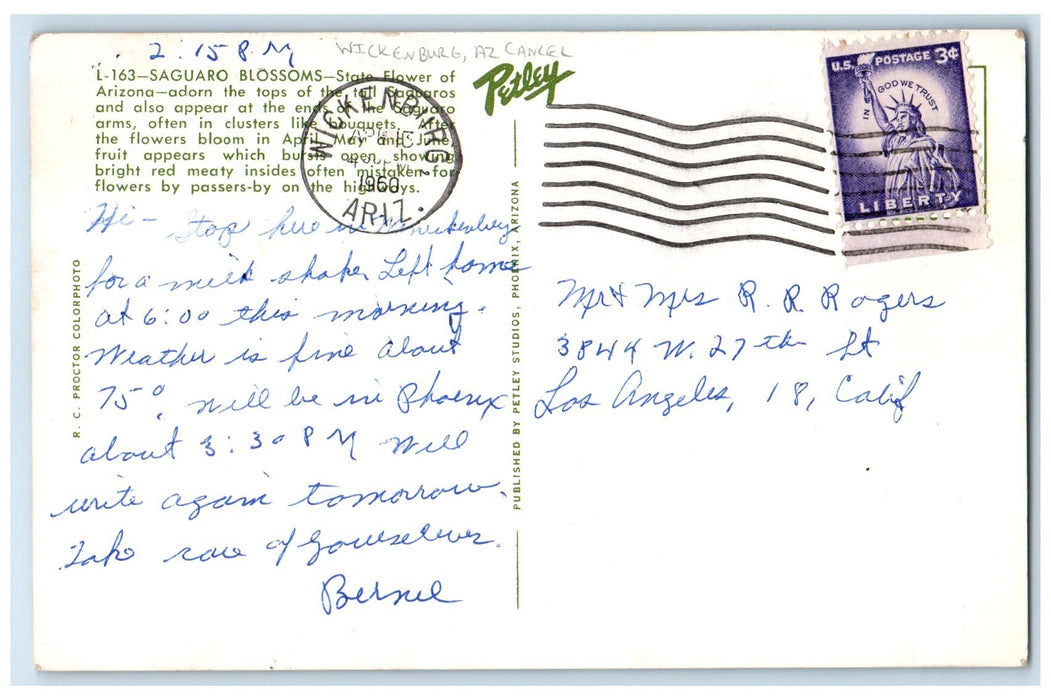 2:15 P M
WICKENBURG, AZ CANCEL
L-163—SAGUARO BLOSSOMS—State Flower of
Arizona—adorn the tops of the tall Saguaros
and also appear at the ends of the Saguaro
arms, often in clusters like bouquets. After
the flowers bloom in April, May and June,
fruit appears which bursts open showing
bright red meaty insides often mistaken for
flowers by passers-by on the highways.
Petley
WICKENBURG,
APR
PM
1960
ARIZ.
U.S. POSTAGE 3¢
IN GOD WE TRUST
LIBERTY
Hi - Stop here in Wickenburg
for a milk shake. Left home
at 6:00 this morning.
Weather is fine about
75°. Will be in Phoenix
about 3:30 P M Will
write again tomorrow.
Take care of yourselves.
Bernel
R. C. PROCTOR COLORPHOTO
PUBLISHED BY PETLEY STUDIOS, PHOENIX, ARIZONA
Mr & Mrs R. R. Rogers
3844 W. 27th St
Los Angeles, 18, Calif